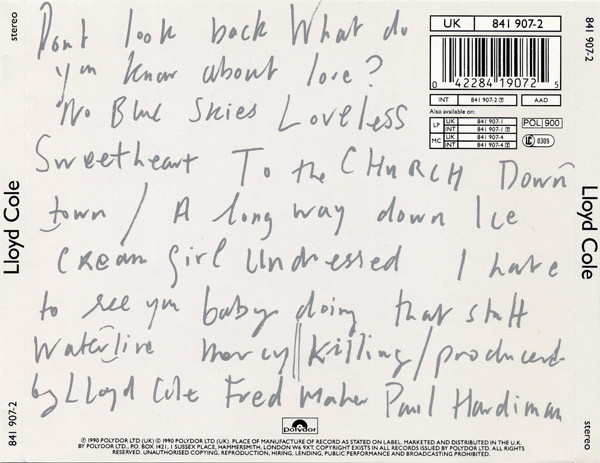 stereo
841 907-2
Lloyd Cole
841 907-2
Dont look back What do
you know about love?
No Blue Skies Loveless
Sweetheart To the CHURCH Down
town / A long way down Ice
Cream Girl Undressed I hate
to see you baby doing that stuff
Waterline mercy || killing / produced
by LLoyd Cole Fred Maher Paul Hardiman
UK 841 907-2
0 42284 19072 5
INT 841 907-2 AAD
Also available on:
LP UK 841 907-1
INT 841 907-1
MC UK 841 907-4
INT 841 907-4
POL 900
LC 0309
841 907-2
Lloyd Cole
stereo
polydor
℗ 1990 POLYDOR LTD (UK) © 1990 POLYDOR LTD (UK). PLACE OF MANUFACTURE OF RECORD AS STATED ON LABEL. MARKETED AND DISTRIBUTED IN THE U.K.
BY POLYDOR LTD., P.O. BOX 1421, 1 SUSSEX PLACE, HAMMERSMITH, LONDON W6 9XT. COPYRIGHT EXISTS IN ALL RECORDS ISSUED BY POLYDOR LTD. ALL RIGHTS
RESERVED. UNAUTHORISED COPYING, REPRODUCTION, HIRING, LENDING, PUBLIC PERFORMANCE AND BROADCASTING PROHIBITED.